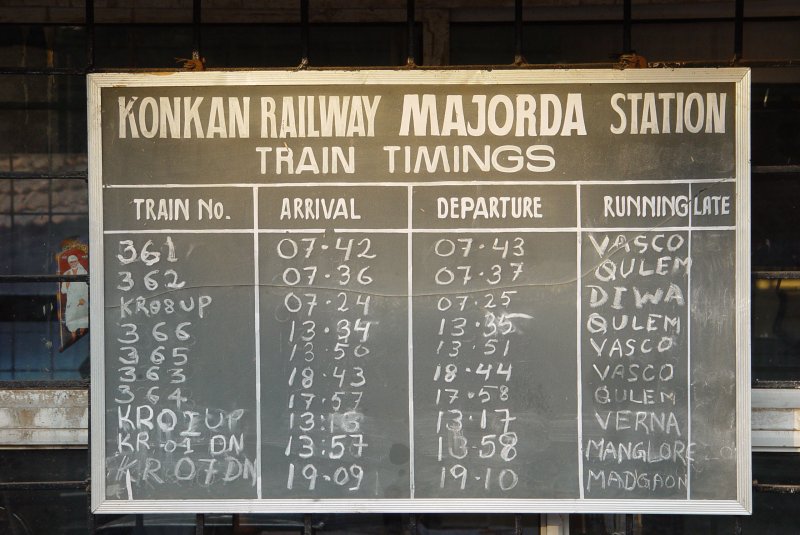 KONKAN RAILWAY MAJORDA STATION
TRAIN TIMINGS
TRAIN NO. ARRIVAL DEPARTURE RUNNING LATE
361 07·42 07·43 VASCO
362 07·36 07·37 QULEM
KR08UP 07·24 07·25 DIWA
366 13·34 13·35 QULEM
365 13·50 13·51 VASCO
363 18·43 18·44 VASCO
364 17·57 17·58 QULEM
KR01UP 13·16 13·17 VERNA
KR·01 DN 13·57 13·58 MANGLORE
KR 07DN 19·09 19·10 MADGAON